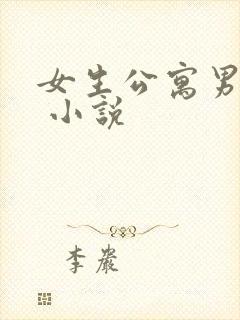 女生公寓男
小說
李嚴